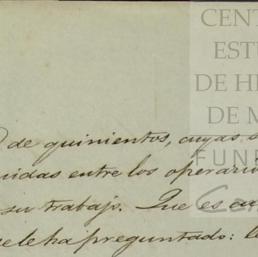 CENT
EST
DE H
DE M
FUN
de quinientos, cuyas
entre los operario
su trabajo. Que es cu
le ha preguntado: